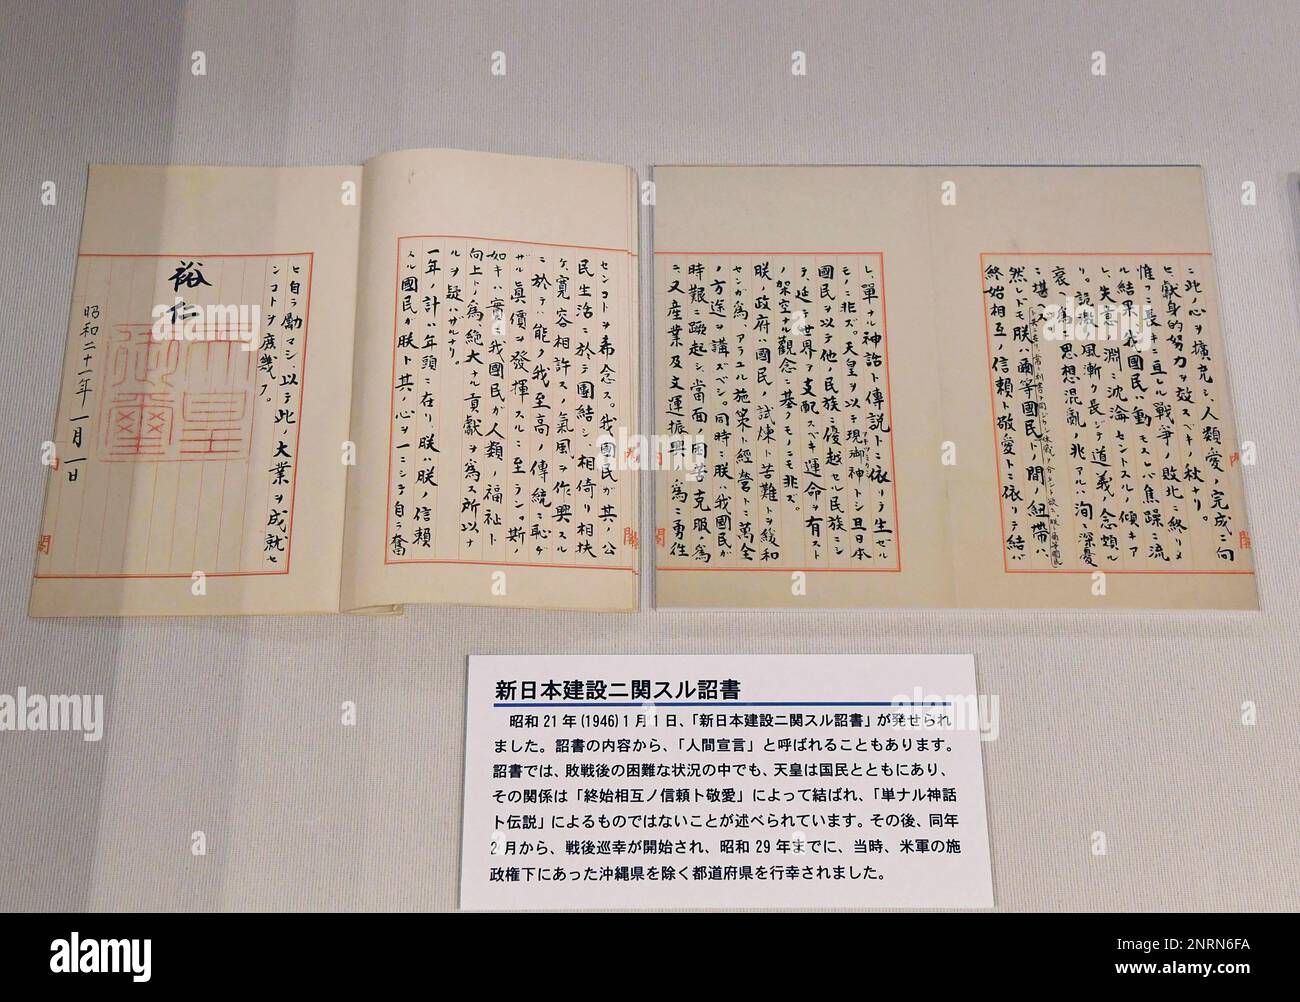 ニ此ノ心ヲ擴充シ、人類愛ノ完成ニ向
ヒ、獻身的努力ヲ效スベキノ秋ナリ。
惟フニ長キニ亘レル戰爭ノ敗北ニ終リタ
ル結果、我國民ハ動モスレバ焦躁ニ流
レ、失意ノ淵ニ沈淪セントスルノ傾キア
リ。詭激ノ風漸ク長ジテ道義ノ念頗ル
衰ヘ、爲ニ思想混亂ノ兆アルハ洵ニ深憂
ニ堪ヘズ。
ト共ニ在リ、常ニ利害ヲ同ジウシ休戚ヲ分タント欲ス。朕ト爾等國民
然レドモ朕ハ爾等國民トノ間ノ紐帶ハ、
終始相互ノ信頼ト敬愛トニ依リテ結バ
レ、單ナル神話ト傳説トニ依リテ生ゼル
モノニ非ズ。天皇ヲ以テ現御神トシ且日本
國民ヲ以テ他ノ民族ニ優越セル民族ニシ
テ、延テ世界ヲ支配スベキ運命ヲ有スト
ノ架空ナル觀念ニ基クモノニモ非ズ。
朕ノ政府ハ國民ノ試煉ト苦難トヲ緩和
センガ爲、アラユル施策ト經營トニ萬全
ノ方途ヲ講ズベシ。同時ニ朕ハ我國民ガ
時艱ニ蹶起シ、當面ノ困苦克服ノ爲
ニ、又産業及文運振興ノ爲ニ勇往
センコトヲ希念ス。我國民ガ其ノ公
民生活ニ於テ團結シ、相倚リ相扶
ケ、寛容相許スノ氣風ヲ作興スル
ニ於テハ、能ク我至高ノ傳統ニ恥ヂ
ザル眞價ヲ發揮スルニ至ラン。斯ノ
如キハ實ニ我國民ガ人類ノ福祉ト
向上トノ爲、絶大ナル貢獻ヲ爲ス所以ナ
ルヲ疑ハザルナリ。
一年ノ計ハ年頭ニ在リ、朕ハ朕ノ信頼
スル國民ガ朕ト其ノ心ヲ一ニシテ自ラ奮
ヒ自ラ勵マシ、以テ此ノ大業ヲ成就セ
ンコトヲ庶幾フ。
裕仁
天皇
御璽
昭和二十一年一月一日
新日本建設ニ関スル詔書
昭和 21 年 (1946) 1 月 1 日、「新日本建設ニ関スル詔書」が発せられ
ました。詔書の内容から、「人間宣言」と呼ばれることもあります。
詔書では、敗戦後の困難な状況の中でも、天皇は国民とともにあり、
その関係は「終始相互ノ信頼ト敬愛」によって結ばれ、「単ナル神話
ト伝説」によるものではないことが述べられています。その後、同年
2 月から、戦後巡幸が開始され、昭和 29 年までに、当時、米軍の施
政権下にあった沖縄県を除く都道府県を行幸されました。
alamy
Image ID: 2NRN6FA
www.alamy.com